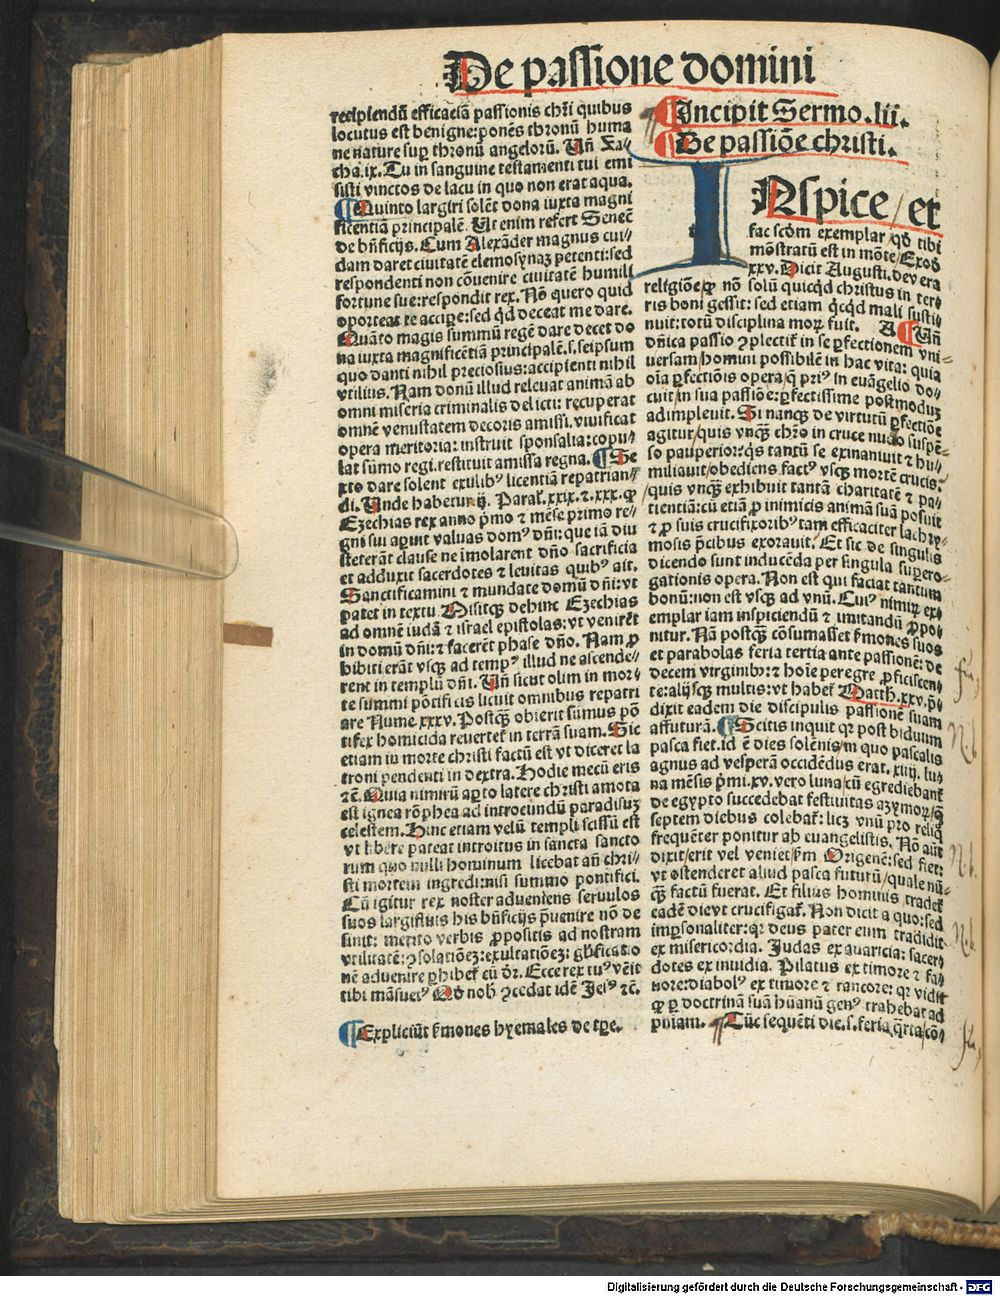 De passione domini
recipiendū efficaciā passionis chri quibus
locutus est benigne: ponēs thronū huma
ne nature sup thronū angelorū. Vñ Za-
cha. ix. Tu in sanguine testamenti tui emi
sisti vinctos de lacu in quo non erat aqua.
¶ Quinto largiri solēt dona iuxta magni
ficentiā principalē. Ut enim refert Senec̄
de bñficijs. Cum Alexāder magnus cui-
dam daret ciuitatē elemosynaʒ petenti: sed
respondenti non cōuenire ciuitatē humili
fortune sue: respondit rex. Nō quero quid
oporteat te accipe: sed qd deceat me dare.
Quāto magis summū regē dare decet do
na iuxta magnificētiā principalē. s. seipsum
quo danti nihil preciosius: accipienti nihil
vtilius. Nam donū illud releuat animā ab
omni miseria criminalis delicti: recuperat
omnē venustatem decoris amissi. viuificat
opera meritoria: instruit sponsalia: copu-
lat sūmo regi. restituit amissa regna. ¶ Se
xto dare solent exulibꝰ licentiā repatrian-
di. Unde habetur ij. Paral. xxix. ⁊ xxx. ꝙ
Ezechias rex anno pmo ⁊ mēse primo re-
gni sui apuit valuas domꝰ dñi: que iā diu
steterāt clause ne imolarent dño sacrificia
et adduxit sacerdotes ⁊ leuitas quibꝰ ait.
Sanctificamini ⁊ mundate domū dñi: vt
patet in textu. Misitqʒ dehinc Ezechias
ad omnē iudā ⁊ israel epistolas: vt venirēt
in domū dñi: ⁊ facerēt phase dño. Nam ꝓ
hibiti erāt vsqʒ ad tempꝰ illud ne ascende-
rent in templū dñi. Vñ sicut olim in mor-
te summi pōtificis licuit omnibus repatri
are Nume. xxxv. Postqʒ obierit sūmus pō
tifex homicida reuertet in terrā suam. Sic
etiam in morte christi factū est vt diceret la
troni pendenti in dextra. Hodie mecū eris
⁊c̄. Quia nimirū apto latere christi amota
est ignea rōphea ad introeundū paradisuʒ
celestem. Hinc etiam velū templi scissū est
vt libere pateat introitus in sancta sancto
rum quo nulli hominum licebat añ chri-
sti mortem ingredi: nisi summo pontifici.
Cū igitur rex noster adueniens seruulos
suos largifluis his bñficijs puenire nō de
sinit: merito verbis ꝓpositis ad nostram
vtilitatē: ꝯsolationēʒ: exultationēʒ: gl̄ificatio
nē aduenire ꝑhibet eū dr̄. Ecce rex tuꝰ venit
tibi māsuetꝰ Qd nob̄ ꝯcedat idē Jesꝰ ⁊c̄.
¶ Expliciūt sermones hyemales de tpe.
¶ Incipit Sermo. lii.
¶ De passiōe christi.
INspice / et
fac scdm exemplar / qd tibi
mōstratū est in mōte / Exod
xxv. Dicit Augusti. de vera
religiōe / ꝙ nō solū quicqd christus in ter
ris boni gessit: sed etiam qcqd mali susti-
nuit: totū disciplina moꝝ fuit. A ¶ Vñ
dñica passio ꝯplectit in se ꝑfectionem vni-
uersam / homini possibilē in hac vita: quia
oīa ꝑfectiōis opera / q priꝰ in euāgelio do-
cuit / in sua passiōe: ꝑfectissime postmoduʒ
adimpleuit. Si nanqʒ de virtutū ꝑfectiōe
agitur / quis vnqʒ chro in cruce nudo suspē-
so pauperior: qs tantū se exinaniuit ⁊ hu-
miliauit / obediens factꝰ vsqʒ mortē crucis.
quis vnqʒ exhibuit tantā charitatē ⁊ pa-
tientiā: cū etiā ꝓ inimicis animā suā posuit
⁊ ꝓ suis crucifixoribꝰ tam efficaciter lachry-
mosis pcibus exorauit. Et sic de singulis
dicendo sunt inducēda per singula supero-
gationis opera. Non est qui faciat tantum
bonū: non est vsqʒ ad vnū. Cuiꝰ nimirū ex-
emplar iam inspiciendū ⁊ imitandū ꝓpo-
nitur. Nā postqʒ cōsumasset sermones suos
et parabolas feria tertia ante passionē: de
decem virginibꝰ: ⁊ hoīe peregre ꝓficiscen-
te: alijsqʒ multis: vt habet Matth. xxv. p-
dixit eadem die discipulis passionē suam
affuturā. ¶ Scitis inquit qꝛ post biduum
pasca fiet. id ē dies solēnis / in quo pascalis
agnus ad vesperā occidēdus erat. xiiij. lu-
na mēsis pmi. xv. vero luna / cū egrediebant
de egypto succedebat festiuitas azymoꝝ / q
septem diebus colebat: licʒ vnū pro reliq
frequēter ponitur ab euangelistis. Nō aūt
dixit / erit vel veniet / scdm Origenē: sed fiet:
vt ostenderet aliud pasca futurū / quale nū-
qʒ factū fuerat. Et filius hominis tradet
eadē die vt crucifigat. Non dicit a quo: sed
impsonaliter: qꝛ deus pater eum tradidit
ex misericordia. Judas ex auaricia: sacer-
dotes ex inuidia. Pilatus ex timore ⁊ fa-
uore: diabolꝰ ex timore ⁊ rancore: qꝛ vidit
ꝙ ꝑ doctrinā suā hūanū genꝰ trahebat ad
pniam. ¶ Tūc sequēti die. s. feria qrta / cō-
N. b.
N. b.
N. b.
Digitalisierung gefördert durch die Deutsche Forschungsgemeinschaft - DFG